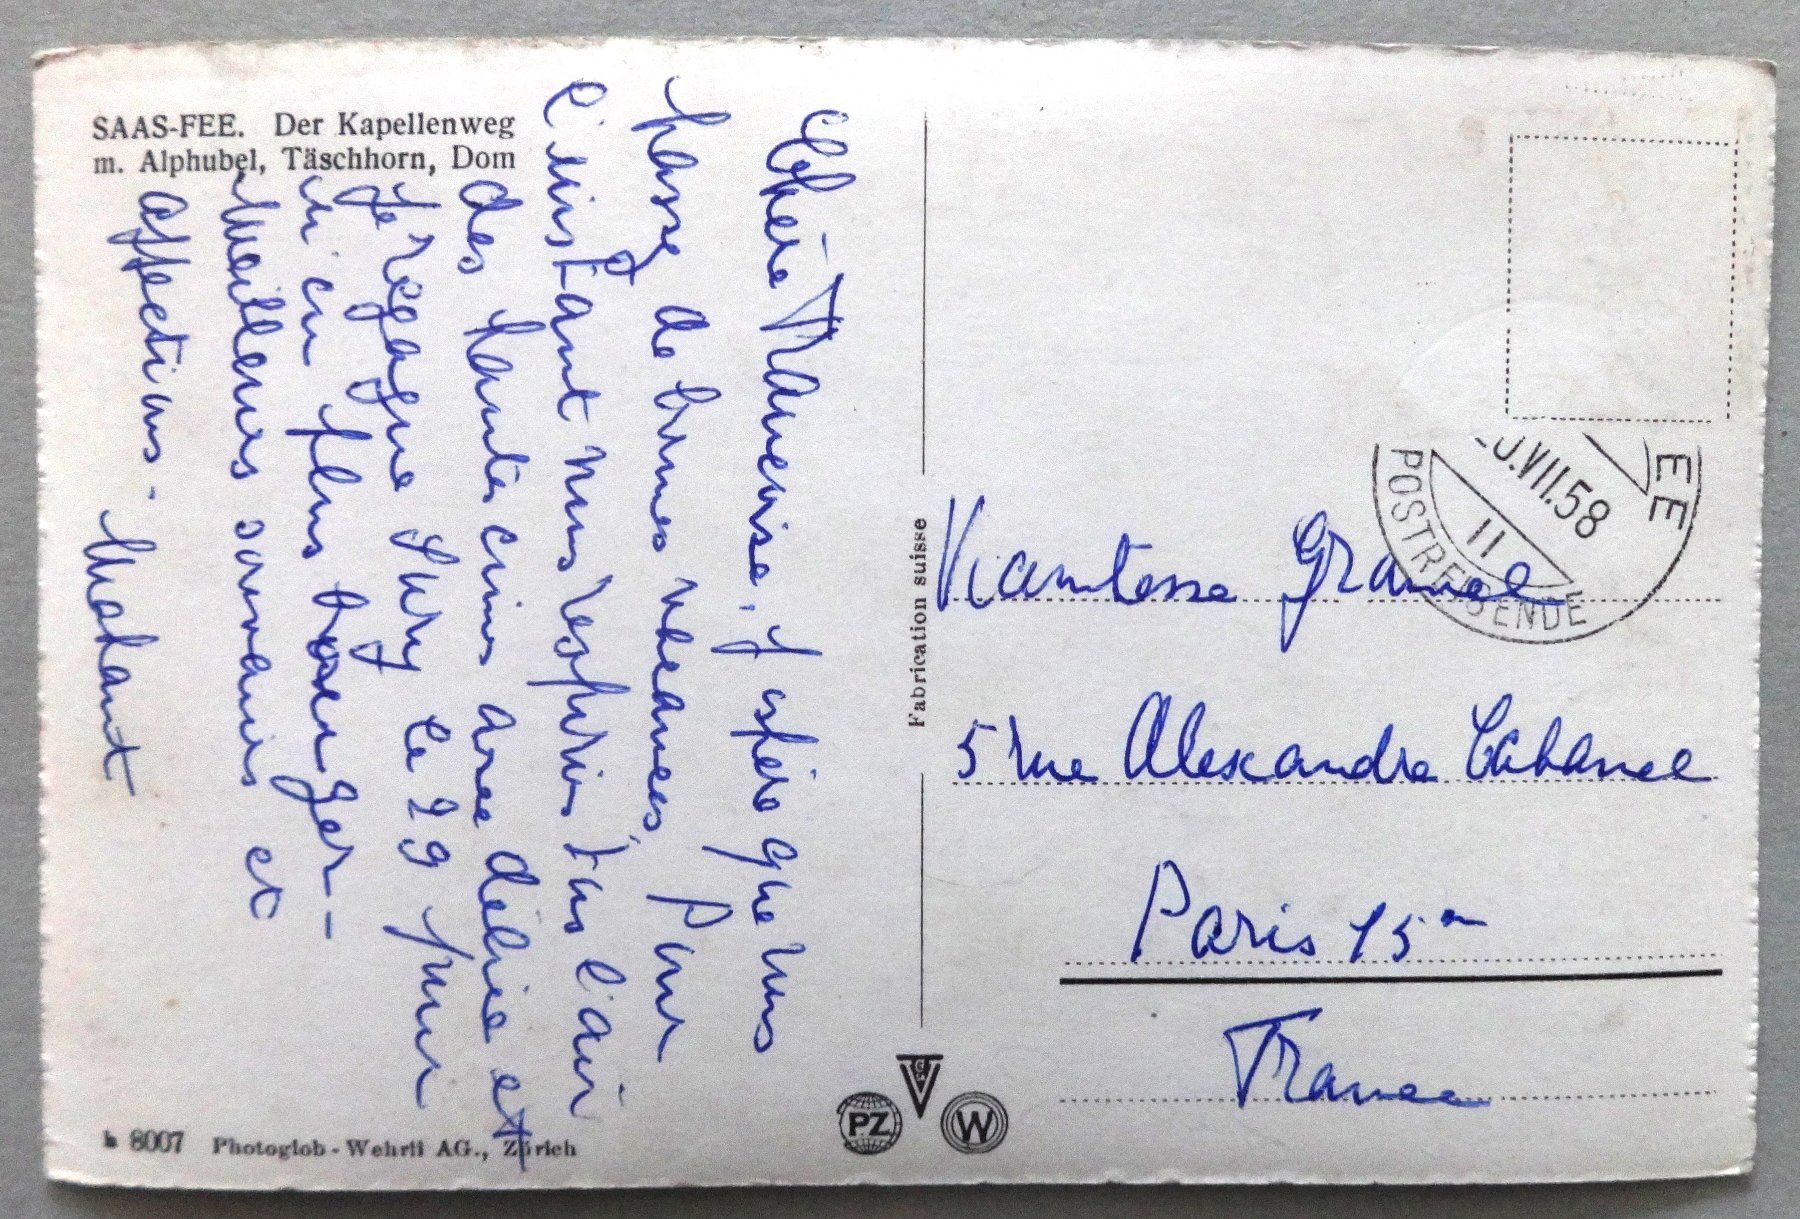 SAAS-FEE. Der Kapellenweg
m. Alphubel, Täschhorn, Dom
Chère Françoise, j'espère que vous
passez de bonnes vacances. Pour
l'instant nous respirons tous l'air
des hautes cimes avec délice et
je regagne Sury le 29 pour
ici en plus
Meilleurs souvenirs et
affections.
b 8007 Photoglob-Wehrli AG., Zürich
Fabrication suisse
PZ
W
EE
.VII.58
11
POSTREISENDE
Vicomtesse
5 rue Alexandre Cabanel
Paris 15em
France